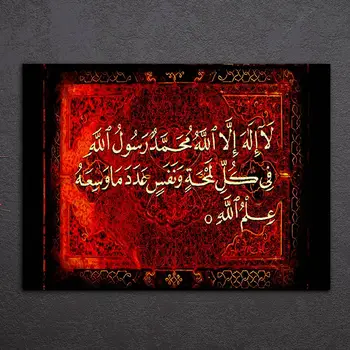 لَا إِلٰهَ إِلَّا ٱللَّهُ مُحَمَّدٌ رَسُولُ ٱللَّهِ
فِي كُلِّ لَمْحَةٍ وَنَفَسٍ عَدَدَ مَا وَسِعَهُ
عِلْمُ ٱللَّهِ